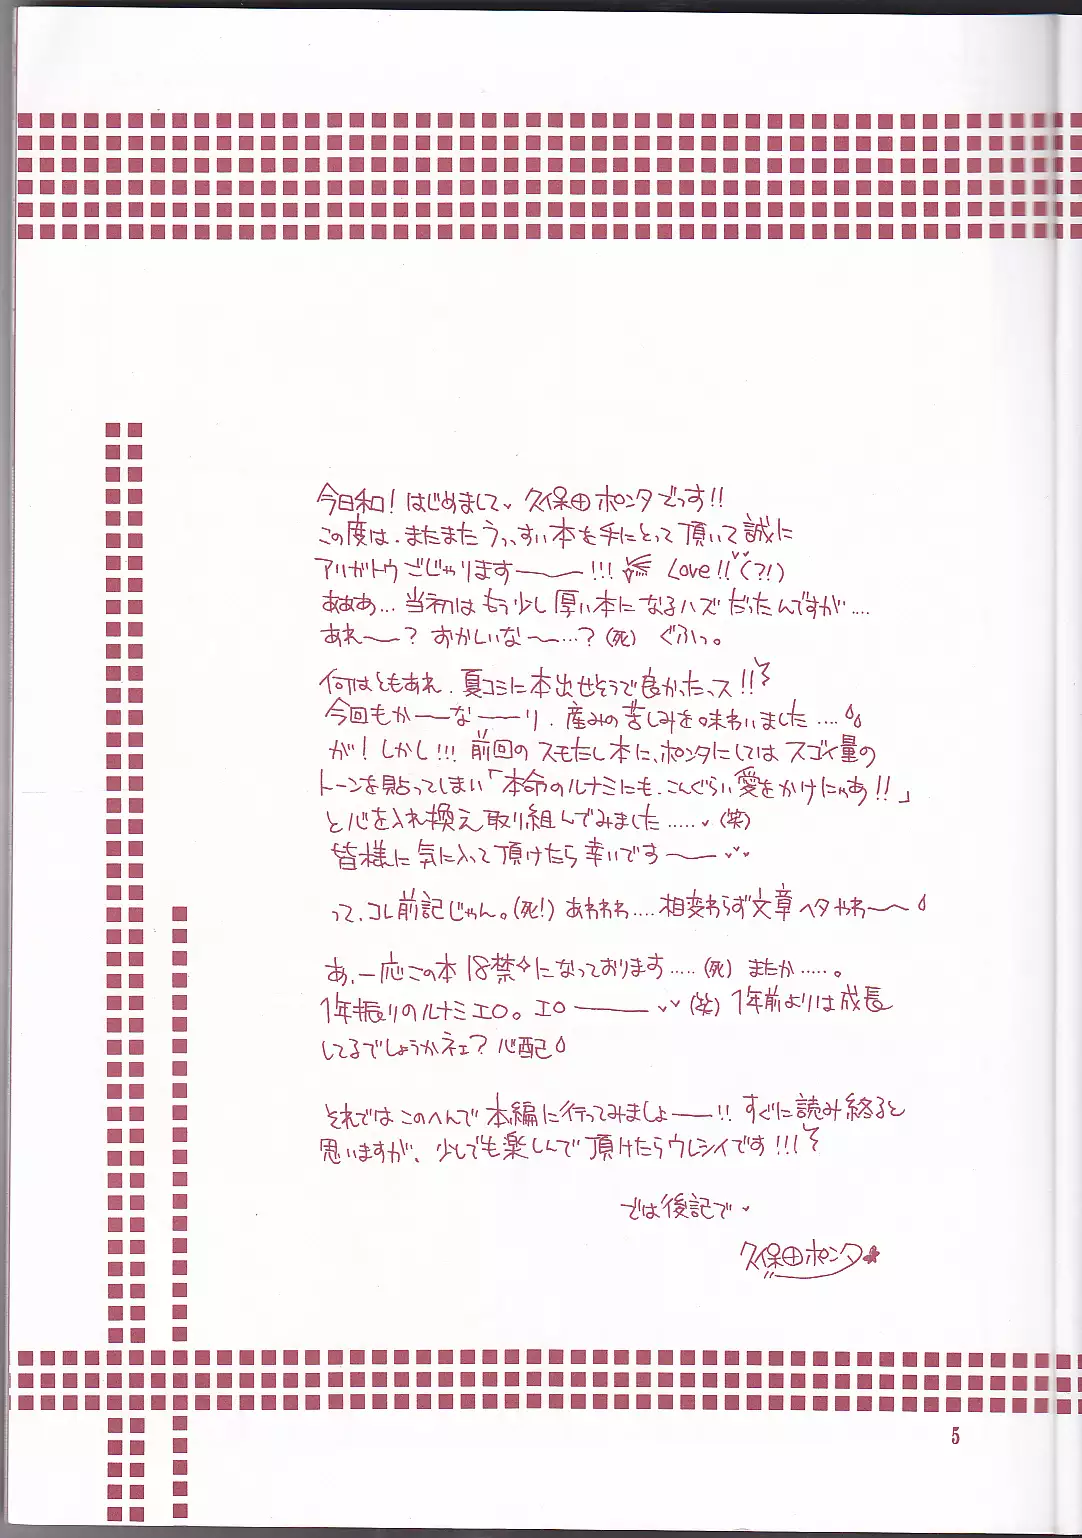 今日和！はじめまして♥久保田ポンタでっす!!
この度は、またまたうっっすい本を手にとって頂いて誠に
アリガトウごじゃりますーー!!! Love!!(?!)
ああぁ…当初はもう少し厚い本になるハズだったんですが….
あれー？おかしいなー…?(死)ぐふっ。
何はともあれ、夏コミに本出せそうで良かったっス!!
今回もかーなーーり、産みの苦しみを味わいました….
が！しかし!!!前回のスモたし本に、ポンタにしてはスゴイ量の
トーンを貼ってしまい「本命のルナミにも、こんぐらい愛をかけにゃあ!!」
と心を入れ換え取り組んでみました…..♥(笑)
皆様に気に入って頂けたら幸いですーー♥♥
って、コレ前記じゃん。(死!)あわわわ….相変わらず文章ヘタやわー〜
あ、一応この本18禁✧になっております…..(死)またか…..。
1年振りのルナミエロ。エローーー♥♥(笑)1年前よりは成長
してるでしょうかネェ？心配
それではこのへんで本編に行ってみましょーー!!すぐに読み終ると
思いますが、少しでも楽しんで頂けたらウレシイです!!!
では後記で♥
久保田ポンタ
5